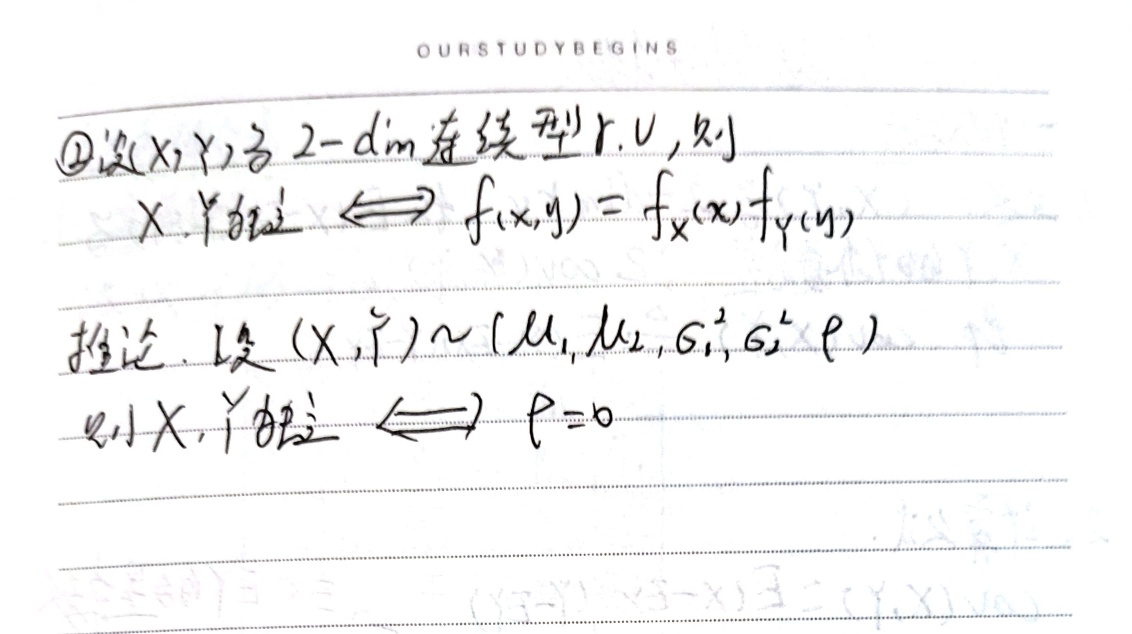 OURSTUDYBEGINS
②设X,Y,为 2-dim连续型r.v,则
X.Y独立 ⟺ f(x,y) = f_X(x) f_Y(y)
推论.设 (X,Y)~(μ₁,μ₂,σ₁²,σ₂² ρ)
则X.Y独立 ⟺ ρ=0